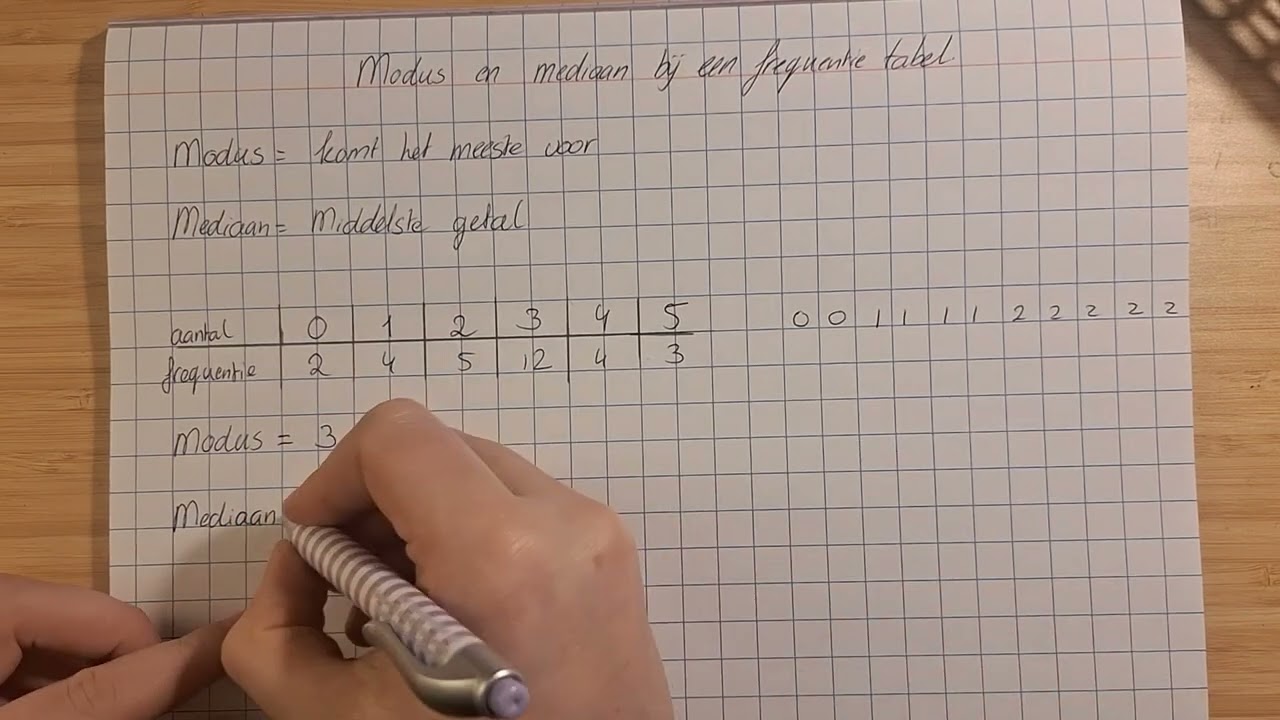 Modus en mediaan bij een frequentie tabel
Modus = komt het meeste voor
Mediaan = Middelste getal
aantal 0 1 2 3 4 5
frequentie 2 4 5 12 4 3
0 0 1 1 1 1 2 2 2 2 2
Modus = 3
Mediaan